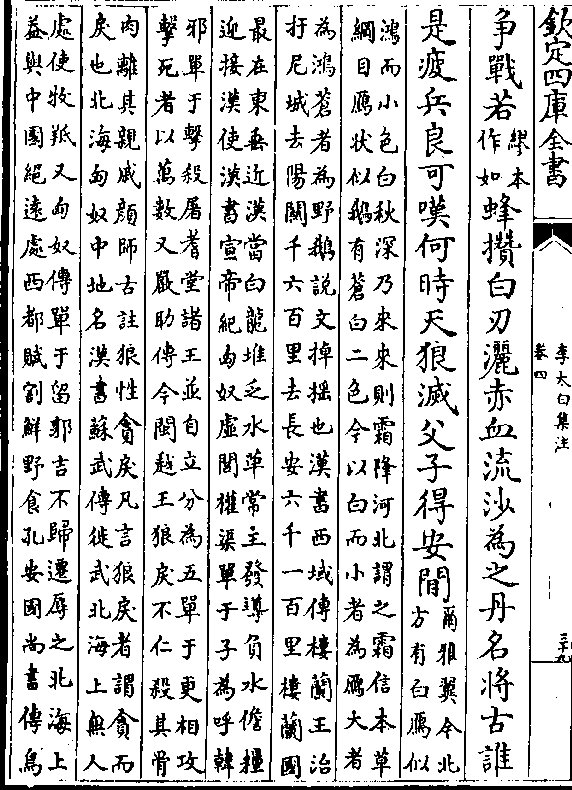 欽定四庫全書
李太白集注
卷四
三十九
爭戰若繆本作如蜂攢白刃灑赤血流沙為之丹名將古誰
是疲兵良可嘆何時天狼滅父子得安閒爾雅翼今北方有白鴈似
鴻而小色白秋深乃來來則霜降河北謂之霜信本草
綱目鴈狀似鵝有蒼白二色今以白而小者為鴈大者
為鴻蒼者為野鵝說文掉揺也漢書西域傳樓蘭王治
扜尼城去陽關千六百里去長安六千一百里樓蘭國
最在東垂近漢當白龍堆乏水草常主發導負水儋糧
迎接漢使漢書宣帝紀匈奴虛閭權渠單于子為呼韓
邪單于擊殺屠耆堂諸王並自立分為五單于更相攻
擊死者以萬數又嚴助傳今閩越王狼戾不仁殺其骨
肉離其親戚顔師古註狼性貪戾凡言狼戾者謂貪而
戾也北海匈奴中地名漢書蘇武傳徙武北海上無人
處使牧羝又匈奴傳單于留郭吉不歸遷辱之北海上
益與中國絕遠處西都賦割鮮野食孔安國尚書傳鳥